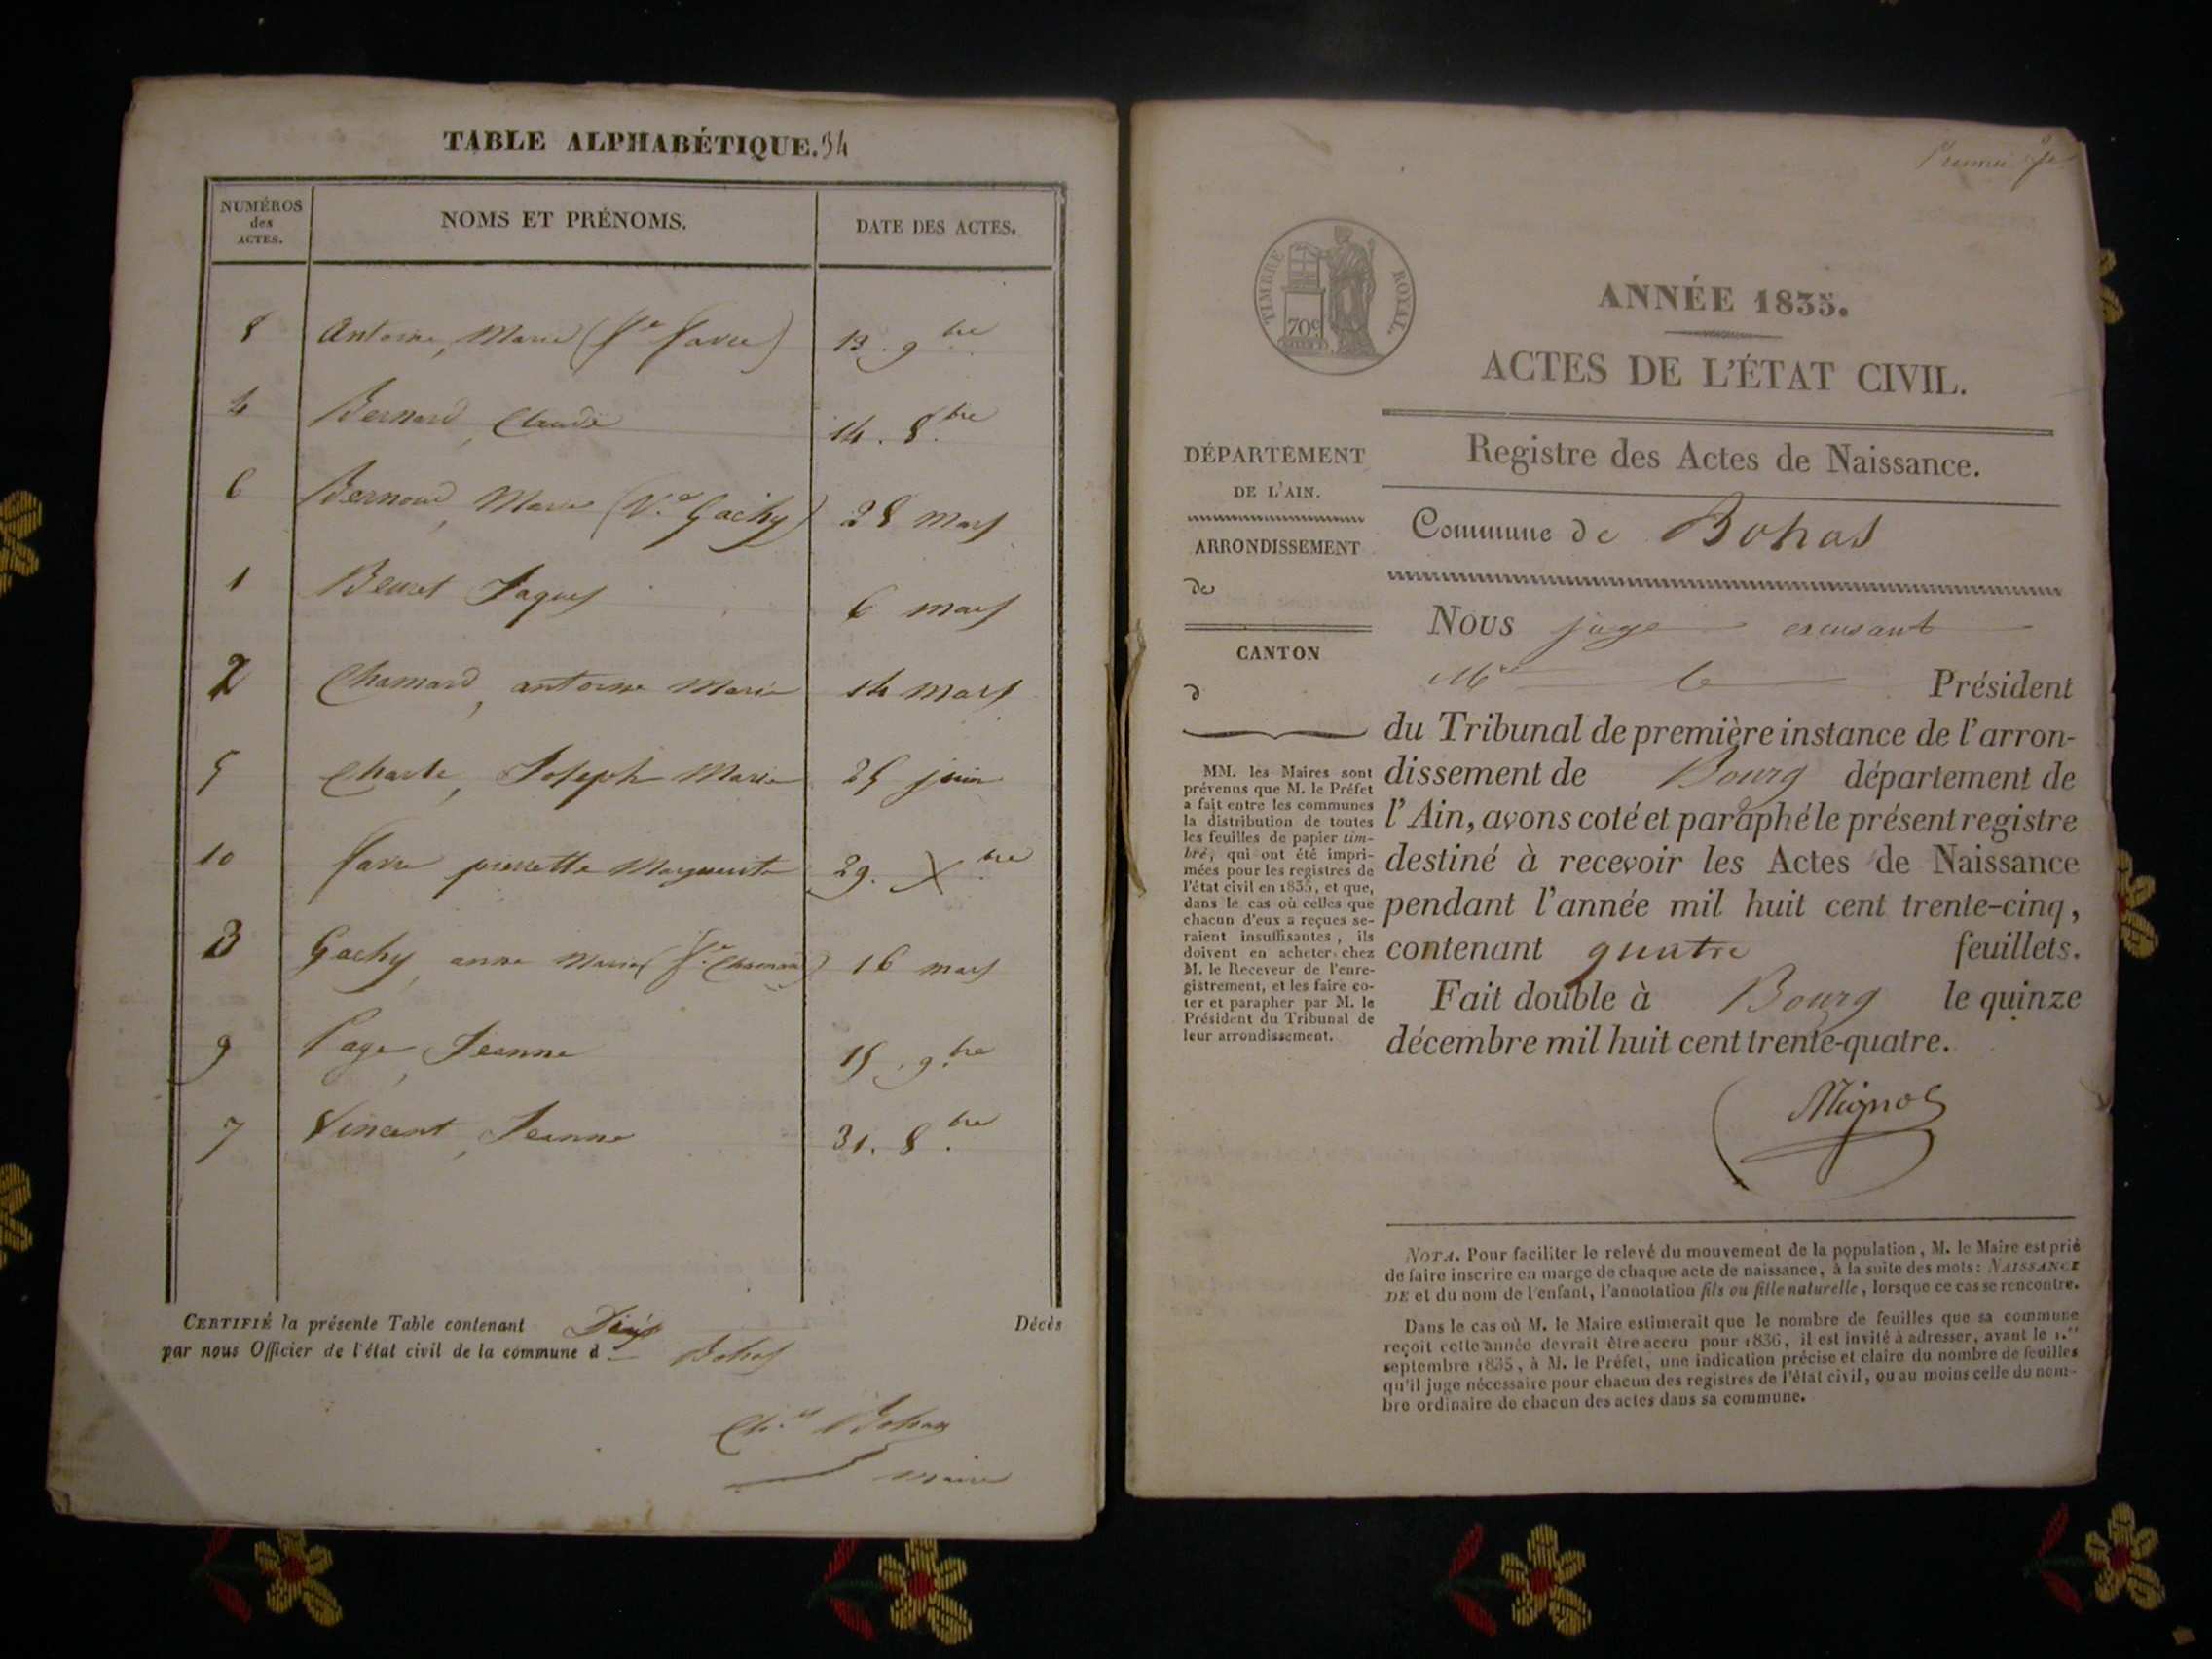 TABLE ALPHABÉTIQUE. 34
NUMÉROS des ACTES. NOMS ET PRÉNOMS. DATE DES ACTES.
8 Antoine, Marie (fe favre) 13. 9bre
4 Bernard, Claude 14. 8bre
6 Bernoud, Marie (Ve Gachy) 28 mars
1 Beuret Jaques 6 mars
2 Chamard, antoine Marie 14 mars
5 Joseph Marie 25 juin
10 favre pierrette Marguerite 29. Xbre
3 Gachy, anne Marie (fe Chamard) 16 mars
9 Page, Jeanne 15. 9bre
7 Vincent, Jeanne 31. 8bre
CERTIFIÉ la présente Table contenant Dix Décès
par nous Officier de l'état civil de la commune d Bohas
Bohan
maire
Premier
TIMBRE ROYAL.
70c
ANNÉE 1835.
ACTES DE L'ÉTAT CIVIL.
Registre des Actes de Naissance.
Commune de Bohas
DÉPARTEMENT
DE L'AIN.
ARRONDISSEMENT
de
CANTON
d
MM. les Maires sont
prévenus que M. le Préfet
a fait entre les communes
la distribution de toutes
les feuilles de papier tim-
bré, qui ont été impri-
mées pour les registres de
l'état civil en 1835, et que,
dans le cas où celles que
chacun d'eux a reçues se-
raient insuffisantes, ils
doivent en acheter chez
M. le Receveur de l'enre-
gistrement, et les faire co-
ter et parapher par M. le
Président du Tribunal de
leur arrondissement.
Nous juge
Mr le Président
du Tribunal de première instance de l'arron-
dissement de Bourg département de
l'Ain, avons coté et paraphé le présent registre
destiné à recevoir les Actes de Naissance
pendant l'année mil huit cent trente-cinq,
contenant quatre feuillets.
Fait double à Bourg le quinze
décembre mil huit cent trente-quatre.
NOTA. Pour faciliter le relevé du mouvement de la population, M. le Maire est prié
de faire inscrire en marge de chaque acte de naissance, à la suite des mots: NAISSANCE
DE et du nom de l'enfant, l'annotation fils ou fille naturelle, lorsque ce cas se rencontre.
Dans le cas où M. le Maire estimerait que le nombre de feuilles que sa commune
reçoit cette année devrait être accru pour 1836, il est invité à adresser, avant le 1.er
septembre 1835, à M. le Préfet, une indication précise et claire du nombre de feuilles
qu'il juge nécessaire pour chacun des registres de l'état civil, ou au moins celle du nom-
bre ordinaire de chacun des actes dans sa commune.